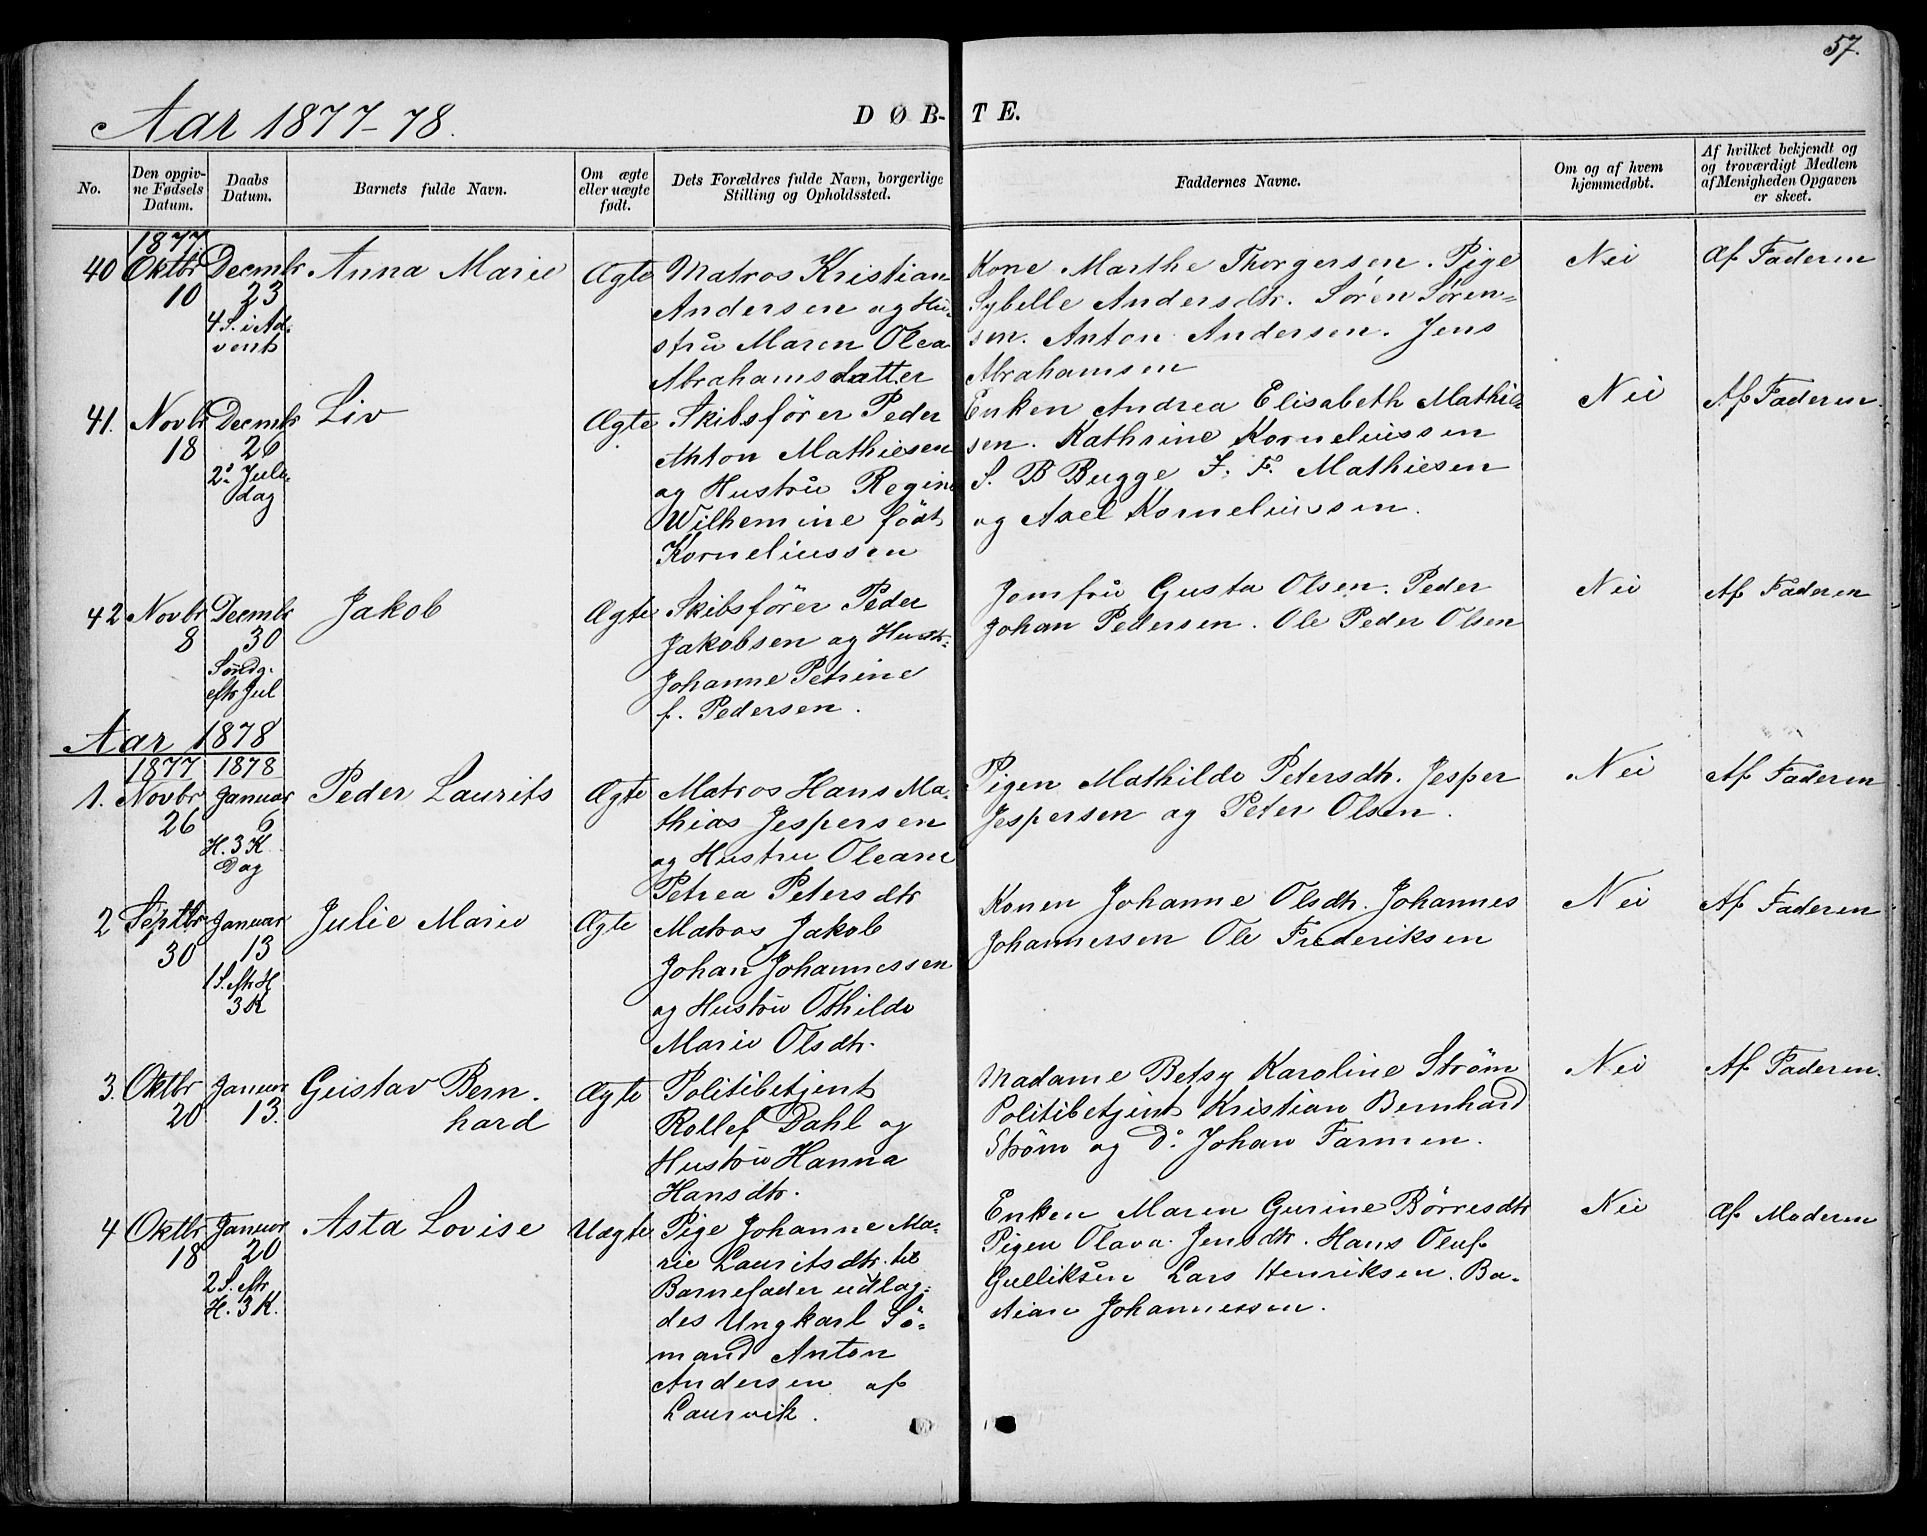 57.
Aar 1877-78.
DØB-TE.
No.
Den opgivne Fødsels Datum.
Daabs Datum.
Barnets fulde Navn.
Om ægte eller uægte født.
Dets Forældres fulde Navn, borgerlige Stilling og Opholdssted.
Faddernes Navne.
Om og af hvem hjemmedøbt.
Af hvilket bekjendt og og troværdigt Medlem af Menigheden Opgaven er skeet.
1877
40 Oktbr 10
Decmbr 23
4 S. i Ad-
vent
Anna Marie
Ægte
Matros Kristian
Andersen og Hu-
stru Maren Olea
Abrahamsdatter
Kone Marthe Thorgersen. Pige
Sybelle Andersdtr. Sören Sören-
sen. Anton Andersen. Jens
Abrahamsen
Nei
Af Faderen
41. Novbr 18
Decmbr 26
2. Jule-
dag
Liv
Ægte
Skibsförer Peder
Anton Mathiesen
og Hustru Regine
Wilhemine födt
Korneliussen
Enken Andrea Elisabeth Mathie-
sen. Kathrine Korneliussen
S. B Bugge J. F. Mathiesen
og Axel Korneliussen.
Nei
Af Faderen.
42 Novbr 8
Decmbr 30
Söndg.
eftr Jul
Jakob
Ægte
Skibsförer Peder
Jakobsen og Hustr-
Johanne Petrine
f. Pedersen.
Jomfru Gusta Olsen. Peder
Johan Pedersen. Ole Peder Olsen
Nei
Af Faderen
Aar 1878
1877 1878
1. Novbr 26
Januar 6
H. 3 K.
Dag
Peder Laurits
Ægte
Matros Hans Ma-
thias Jespersen
og Hustru Oleane
Petrea Petersdtr
Pigen Mathilde Petersdtr. Jesper
Jespersen og Peter Olsen.
Nei
Af Faderen
2 Septbr 30
Januar 13
1 S. eftr H
3 K
Julie Marie
Ægte
Matros Jakob
Johan Johannessen
og Hustru Othilde
Marie Olsdtr.
Konen Johanne Olsdtr. Johannes
Johannessen Ole Frederiksen
Nei
Af Faderen
3. Oktbr 20
Januar 13.
Gustav Bern-
hard
Ægte
Politibetjent
Rollef Dahl og
Hustru Hanna
Hansdtr.
Madame Betsy Karoline Ström
Politibetjent Kristian Bernhard
Ström og Do. Johan Farmen.
Nei
Af Faderen.
4 Oktbr 18
Januar 20
2 S. eftr
H. 3 K.
Asta Lovise
Uægte
Pige Johanne Ma-
rie Lauritsdtr. til
Barnefader udlag-
des Ungkarl Sö-
mand Anton
Andersen af
Laurvik.
Enken Maren Gurine Börresdtr
Pigen Olava Jensdtr. Hans Oluf
Gulliksen Lars Henriksen. Ba-
stian Johannessen.
Nei
Af Moderen